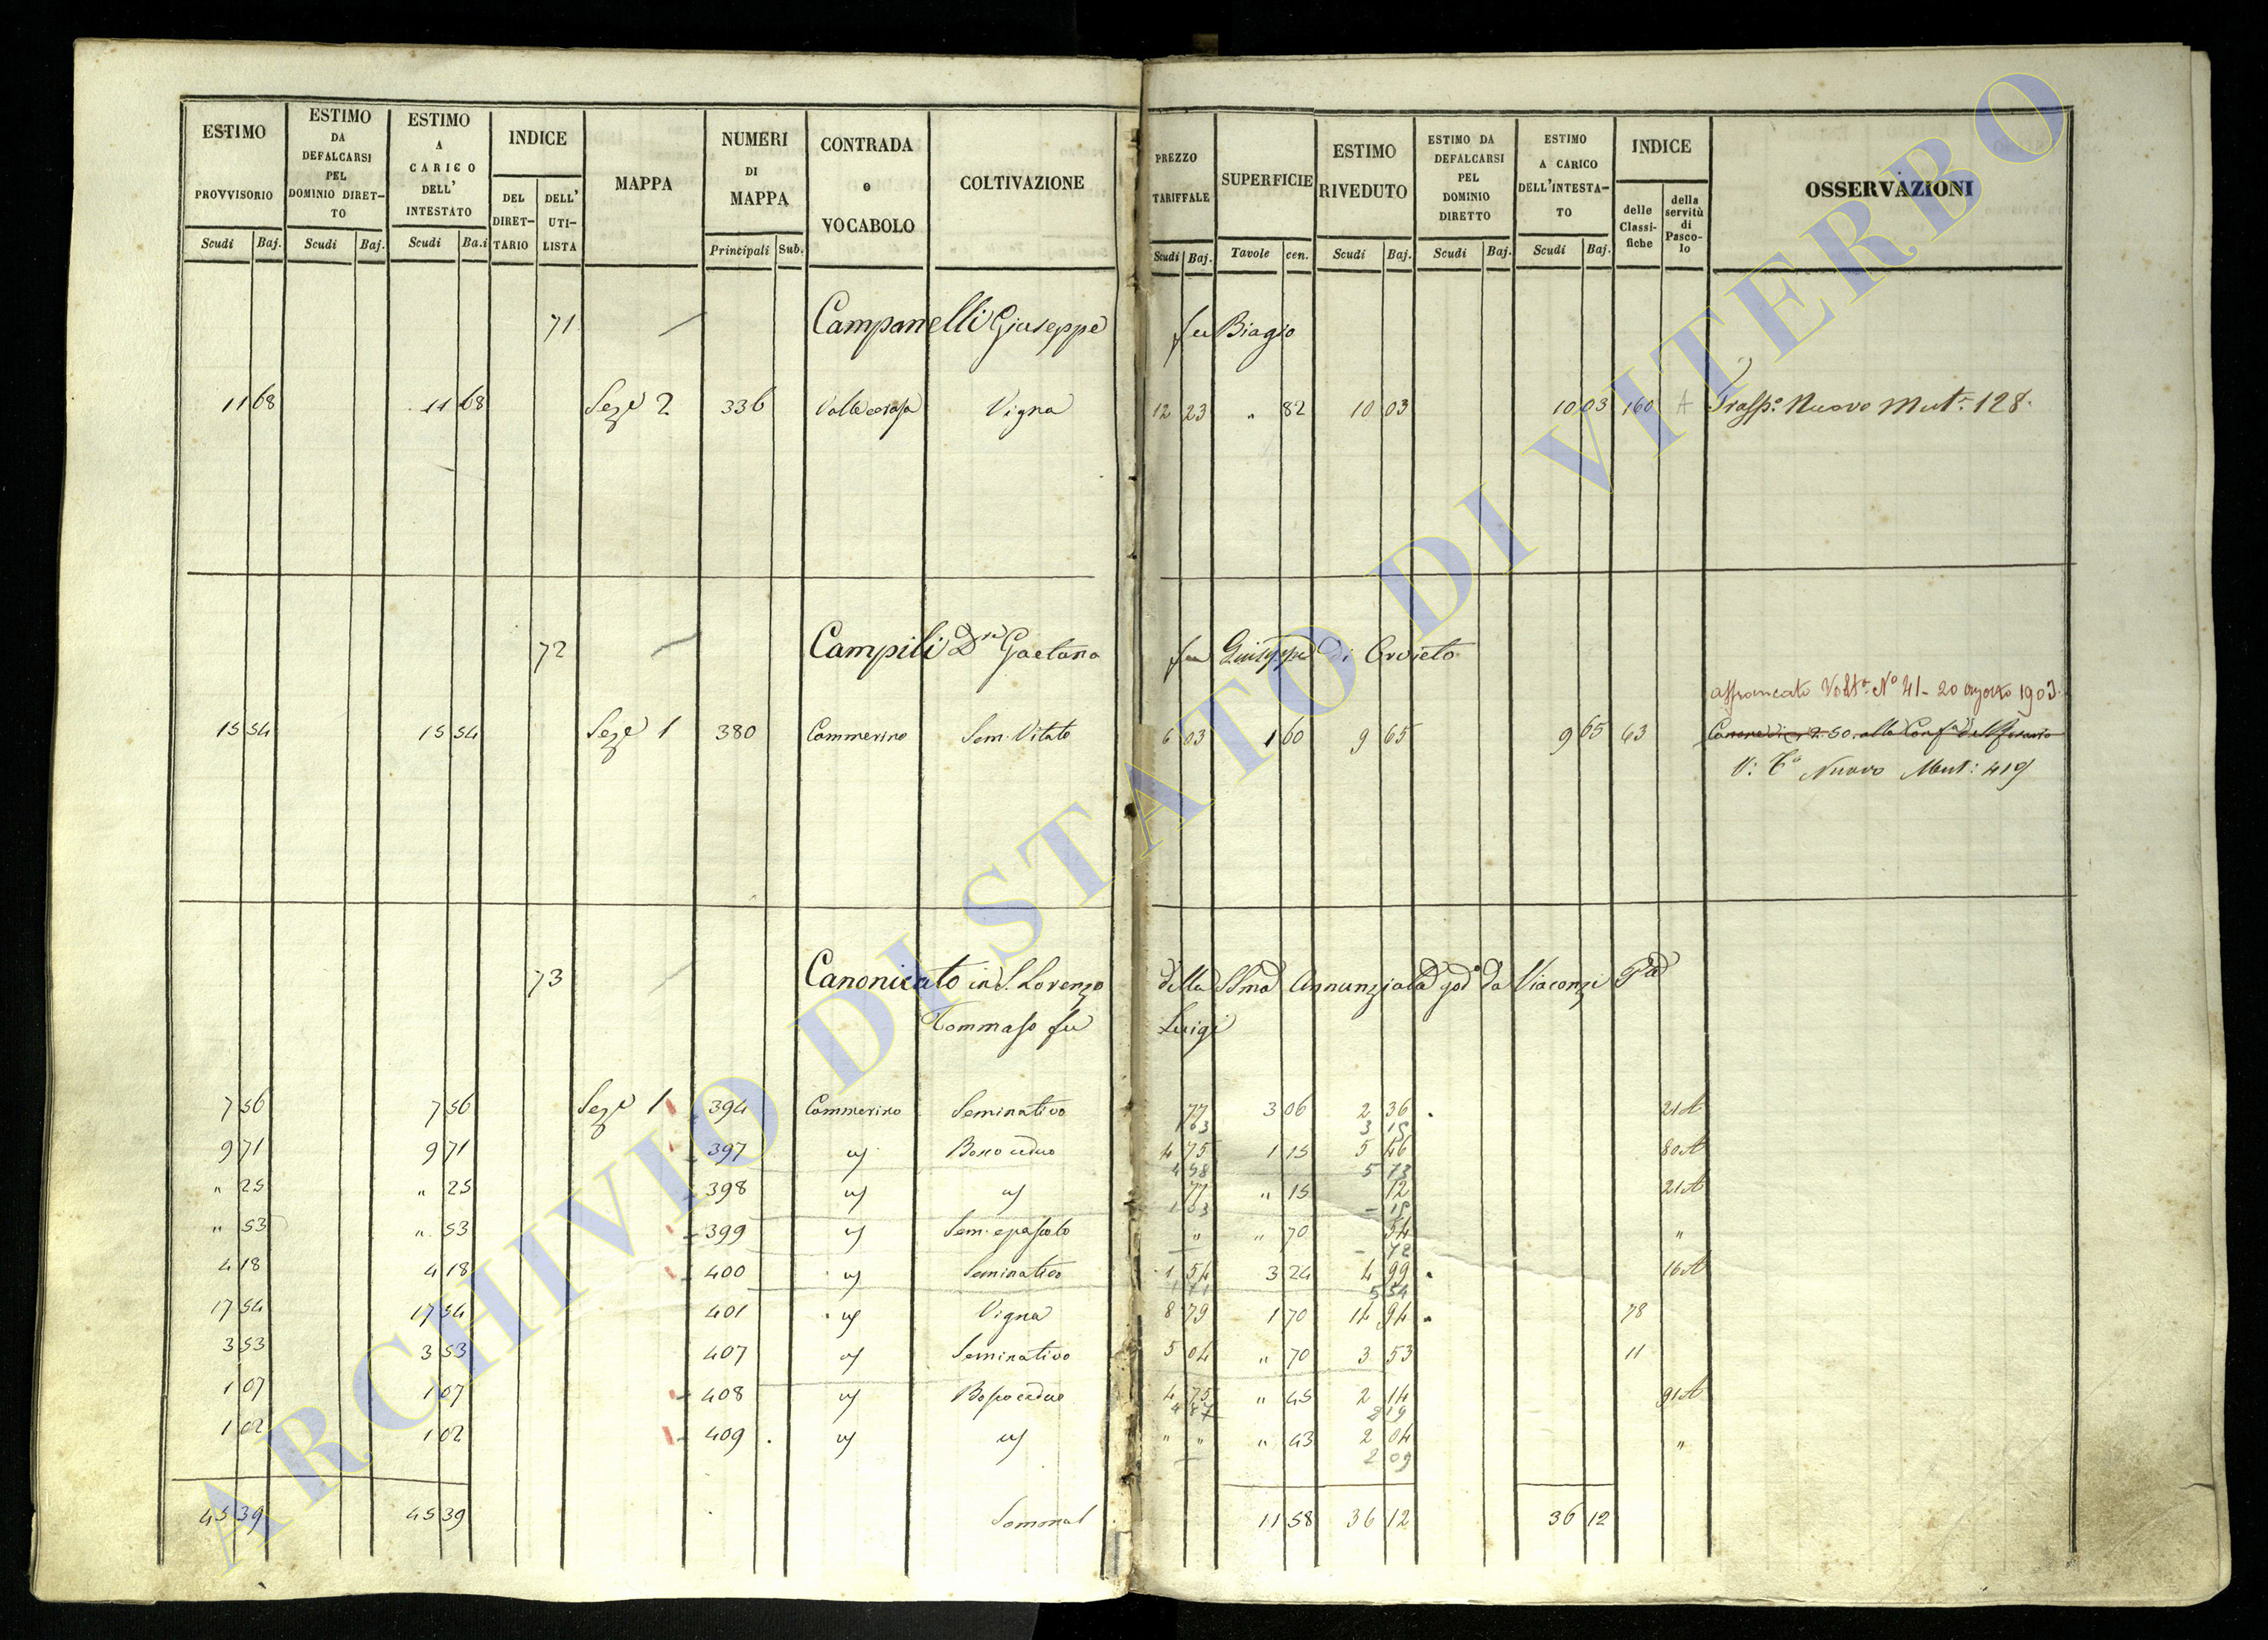 ESTIMO PROVVISORIO Scudi Baj.
ESTIMO DA DEFALCARSI PEL DOMINIO DIRET-TO Scudi Baj.
ESTIMO A CARICO DELL' INTESTATO Scudi Ba.i
INDICE DEL DIRET-TARIO DELL' UTI-LISTA
MAPPA
NUMERI DI MAPPA Principali Sub.
CONTRADA o VOCABOLO
COLTIVAZIONE
PREZZO TARIFFALE Scudi Baj.
SUPERFICIE Tavole cen.
ESTIMO RIVEDUTO Scudi Baj.
ESTIMO DA DEFALCARSI PEL DOMINIO DIRETTO Scudi Baj.
ESTIMO A CARICO DELL'INTESTA-TO Scudi Baj.
INDICE delle Classi-fiche della servitù di Pasco-lo
OSSERVAZIONI
71 Campanelli Giuseppe fu Biagio
11 68 11 68 Seze 2 336 Vigna 12 23 " 82 10 03 10 03 160 A Trasp.o Nuovo Mut. 128.
72 Campili Dr Gaetano fu Giuseppe di Orvieto
affrancato Volt.a No 41 - 20 agosto 1903.
15 54 15 54 Seze 1 380 Commerino Sem. Vitato 6 03 1 60 9 65 9 65 63 Canone di 2.50 alla
V: Nuovo Mut: 419
73 Canonicato in S. Lorenzo della SSma Annunziata god.o da Viaconzi
Tommaso fu Luigi
7 56 7 56 Seze 1 394 Commerino Seminativo 77 3 06 2 36 21 A
1 03 3 15
9 71 9 71 397 Bosco ceduo 4 75 1 15 5 46 80 A
4 98 5 73
" 25 " 25 398 77 " 15 12 21 A
1 03 - 15
" 53 " 53 399 Sem. e pascolo " " 70 54 "
- 72
4 18 4 18 400 Seminativo 1 54 3 24 4 99 16 A
1 71 5 54
17 54 17 54 401 Vigna 8 79 1 70 14 94 78
3 53 3 53 407 Seminativo 5 04 " 70 3 53 11
1 07 1 07 408 Bosco ceduo 4 75 " 45 2 14 91 A
4 87 2 19
1 02 1 02 409 " " " 43 2 04 "
2 09
45 39 45 39 Sommal 11 58 36 12 36 12
ARCHIVIO DI STATO DI VITERBO